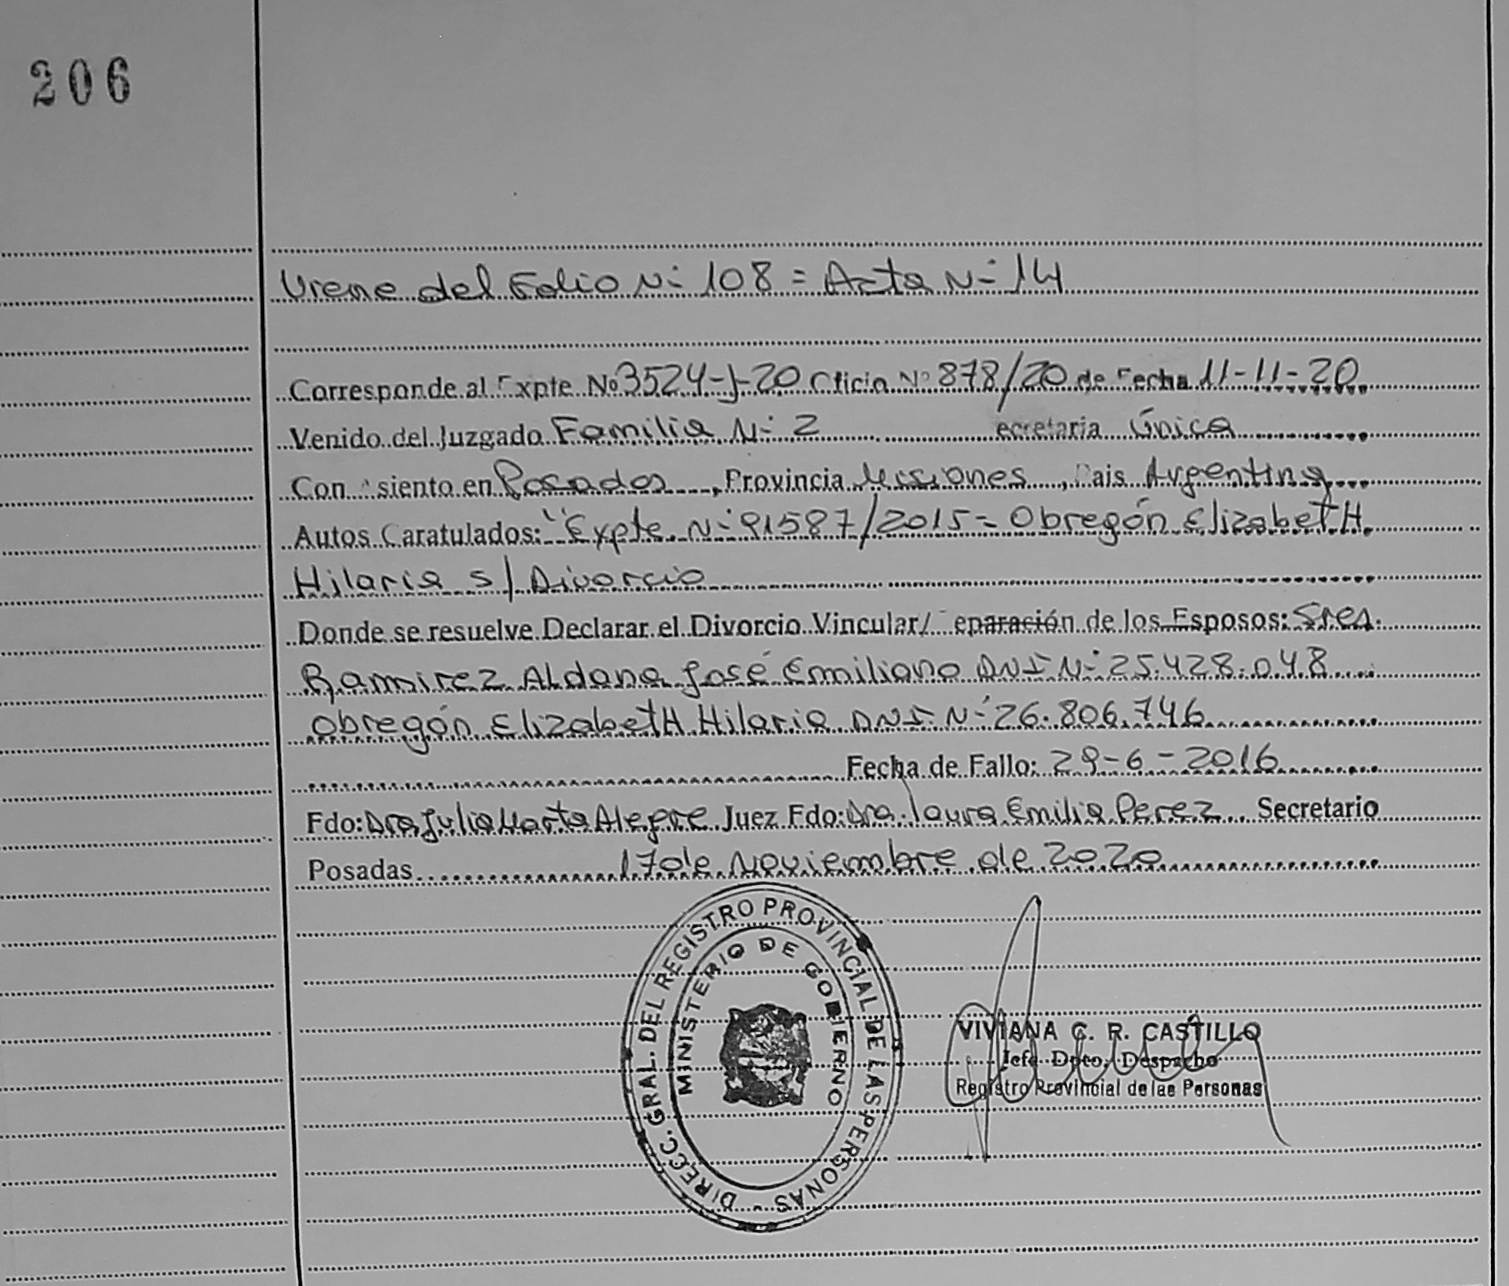 206
Viene del Folio N- 108 = Acta N- 14
Corresponde al Expte. No 3524-J-20 Oficio Nº 878/20 de Fecha 11-11-20
Venido del Juzgado Familia N- 2 ecretaria Única
Con siento en Posadas, Provincia Misiones, Pais Argentina
Autos Caratulados: "Expte N- 91587/2015 = Obregón ElizabetH
Hilaria s/ Divorcio
Donde se resuelve Declarar el Divorcio Vincular/ eparación de los Esposos: Sres.
Ramirez Aldana José Emiliano DNI N- 25.428.048
Obregón ElizabetH Hilaria DNI N- 26.806.746
Fecha de Fallo: 29-6-2016
Fdo: Dra Julia Marta Alegre Juez Fdo: Dra. Laura Emilia Perez Secretario
Posadas 17 de Noviembre de 2020
DIRECC. GRAL. DEL REGISTRO PROVINCIAL DE LAS PERSONAS
MINISTERIO DE GOBIERNO
VIVIANA C. R. CASTILLO
Jefe Dpto. Despacho
Registro Provincial de las Personas